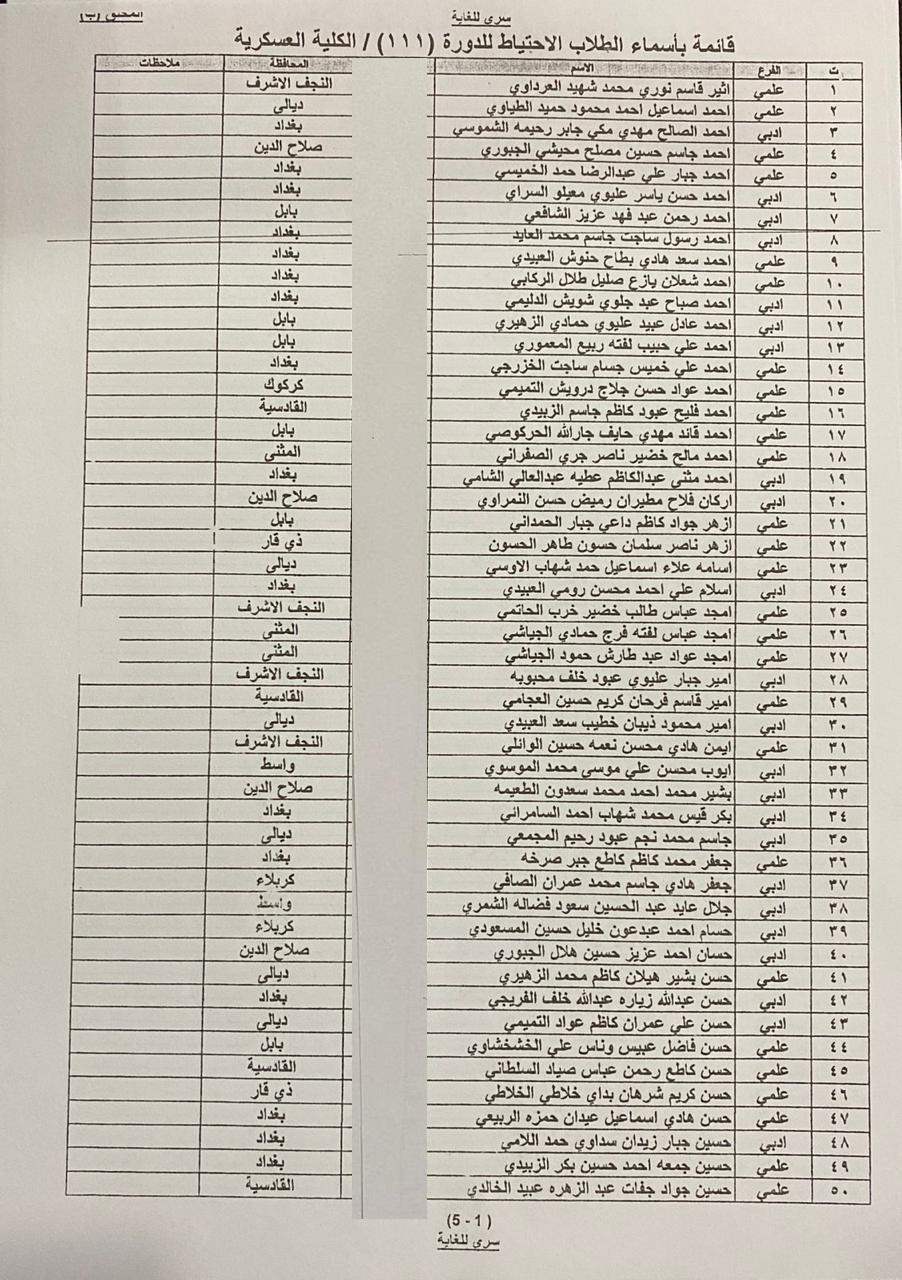 سري للغاية
الملحق (ب)
قائمة بأسماء الطلاب الاحتياط للدورة (١١١) / الكلية العسكرية
ت الفرع الاسم المحافظة ملاحظات
١ علمي اثير قاسم نوري محمد شهيد العرداوي النجف الاشرف
٢ علمي احمد اسماعيل احمد محمود حميد الطياوي ديالى
٣ ادبي احمد الصالح مهدي مكي جابر رحيمه الشموسي بغداد
٤ علمي احمد جاسم حسين مصلح محيشي الجبوري صلاح الدين
٥ علمي احمد جبار علي عبدالرضا حمد الخميسي بغداد
٦ ادبي احمد حسن ياسر عليوي معيلو السراي بغداد
٧ ادبي احمد رحمن عبد فهد عزيز الشافعي بابل
٨ ادبي احمد رسول ساجت جاسم محمد العايد بغداد
٩ علمي احمد سعد هادي بطاح حنوش العبيدي بغداد
١٠ علمي احمد شعلان يازع صليل طلال الركابي بغداد
١١ ادبي احمد صباح عبد جلوي شويش الدليمي بغداد
١٢ ادبي احمد عادل عبيد عليوي حمادي الزهيري بابل
١٣ ادبي احمد علي حبيب لفته ربيع المعموري بابل
١٤ علمي احمد علي خميس جسام ساجت الخزرجي بغداد
١٥ علمي احمد عواد حسن جلاج درويش التميمي كركوك
١٦ علمي احمد فليح عبود كاظم جاسم الزبيدي القادسية
١٧ علمي احمد قائد مهدي حايف جارالله الحركوصي بابل
١٨ علمي احمد مالح خضير ناصر جري الصفراني المثنى
١٩ ادبي احمد مثنى عبدالكاظم عطيه عبدالعالي الشامي بغداد
٢٠ ادبي اركان فلاح مطيران رميض حسن النمراوي صلاح الدين
٢١ علمي ازهر جواد كاظم داعي جبار الحمداني بابل
٢٢ علمي ازهر ناصر سلمان حسون طاهر الحسون ذي قار
٢٣ علمي اسامه علاء اسماعيل حمد شهاب الاوسي ديالى
٢٤ ادبي اسلام علي احمد محسن رومي العبيدي بغداد
٢٥ علمي امجد عباس طالب خضير خرب الحاتمي النجف الاشرف
٢٦ علمي امجد عباس لفته فرج حمادي الجياشي المثنى
٢٧ علمي امجد عواد عبد طارش حمود الجياشي المثنى
٢٨ ادبي امير جبار عليوي عبود خلف محبوبه النجف الاشرف
٢٩ علمي امير قاسم فرحان كريم حسين العجامي القادسية
٣٠ ادبي امير محمود ذيبان خطيب سعد العبيدي ديالى
٣١ علمي ايمن هادي محسن نعمه حسين الوائلي النجف الاشرف
٣٢ ادبي ايوب محسن علي موسى محمد الموسوي واسط
٣٣ ادبي بشير محمد احمد محمد سعدون الطعيمه صلاح الدين
٣٤ ادبي بكر قيس محمد شهاب احمد السامرائي بغداد
٣٥ ادبي جاسم محمد نجم عبود رحيم المجمعي ديالى
٣٦ علمي جعفر محمد كاظم كاطع جبر صرخه بغداد
٣٧ ادبي جعفر هادي جاسم محمد عمران الصافي كربلاء
٣٨ ادبي جلال عايد عبد الحسين سعود فضاله الشمري واسط
٣٩ ادبي حسام احمد عبدعون خليل حسين المسعودي كربلاء
٤٠ ادبي حسان احمد عزيز حسين هلال الجبوري صلاح الدين
٤١ علمي حسن بشير هيلان كاظم محمد الزهيري ديالى
٤٢ ادبي حسن عبدالله زياره عبدالله خلف الفريجي بغداد
٤٣ ادبي حسن علي عمران كاظم عواد التميمي ديالى
٤٤ علمي حسن فاضل عبيس وناس علي الخشخشاوي بابل
٤٥ علمي حسن كاطع رحمن عباس صياد السلطاني القادسية
٤٦ علمي حسن كريم شرهان بداي خلاطي الخلاطي ذي قار
٤٧ علمي حسن هادي اسماعيل عيدان حمزه الربيعي بغداد
٤٨ ادبي حسين جبار زيدان سداوي حمد اللامي بغداد
٤٩ علمي حسين جمعه احمد حسين بكر الزبيدي بغداد
٥٠ علمي حسين جواد جفات عبد الزهره عبيد الخالدي القادسية
(5 - 1)
سري للغاية